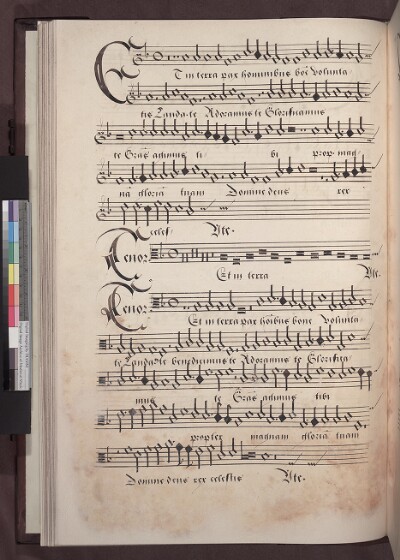 Et in terra pax hominibus bone volunta
tis Lauda te Adoramus te Glorificamus
te Gras agimus ti bi prop mag
nā gloriā tuam Domine deus rex
celes Vte.
Tenor
Et in terra Vte
Tenor
Et in terra pax hoībus bone volunta
te Laudate benedicimus te Adoramus te Glorifica
mus te Gras agimus tibi
propter magnam gloriā tuam
Domine deus rex celestis Vte.